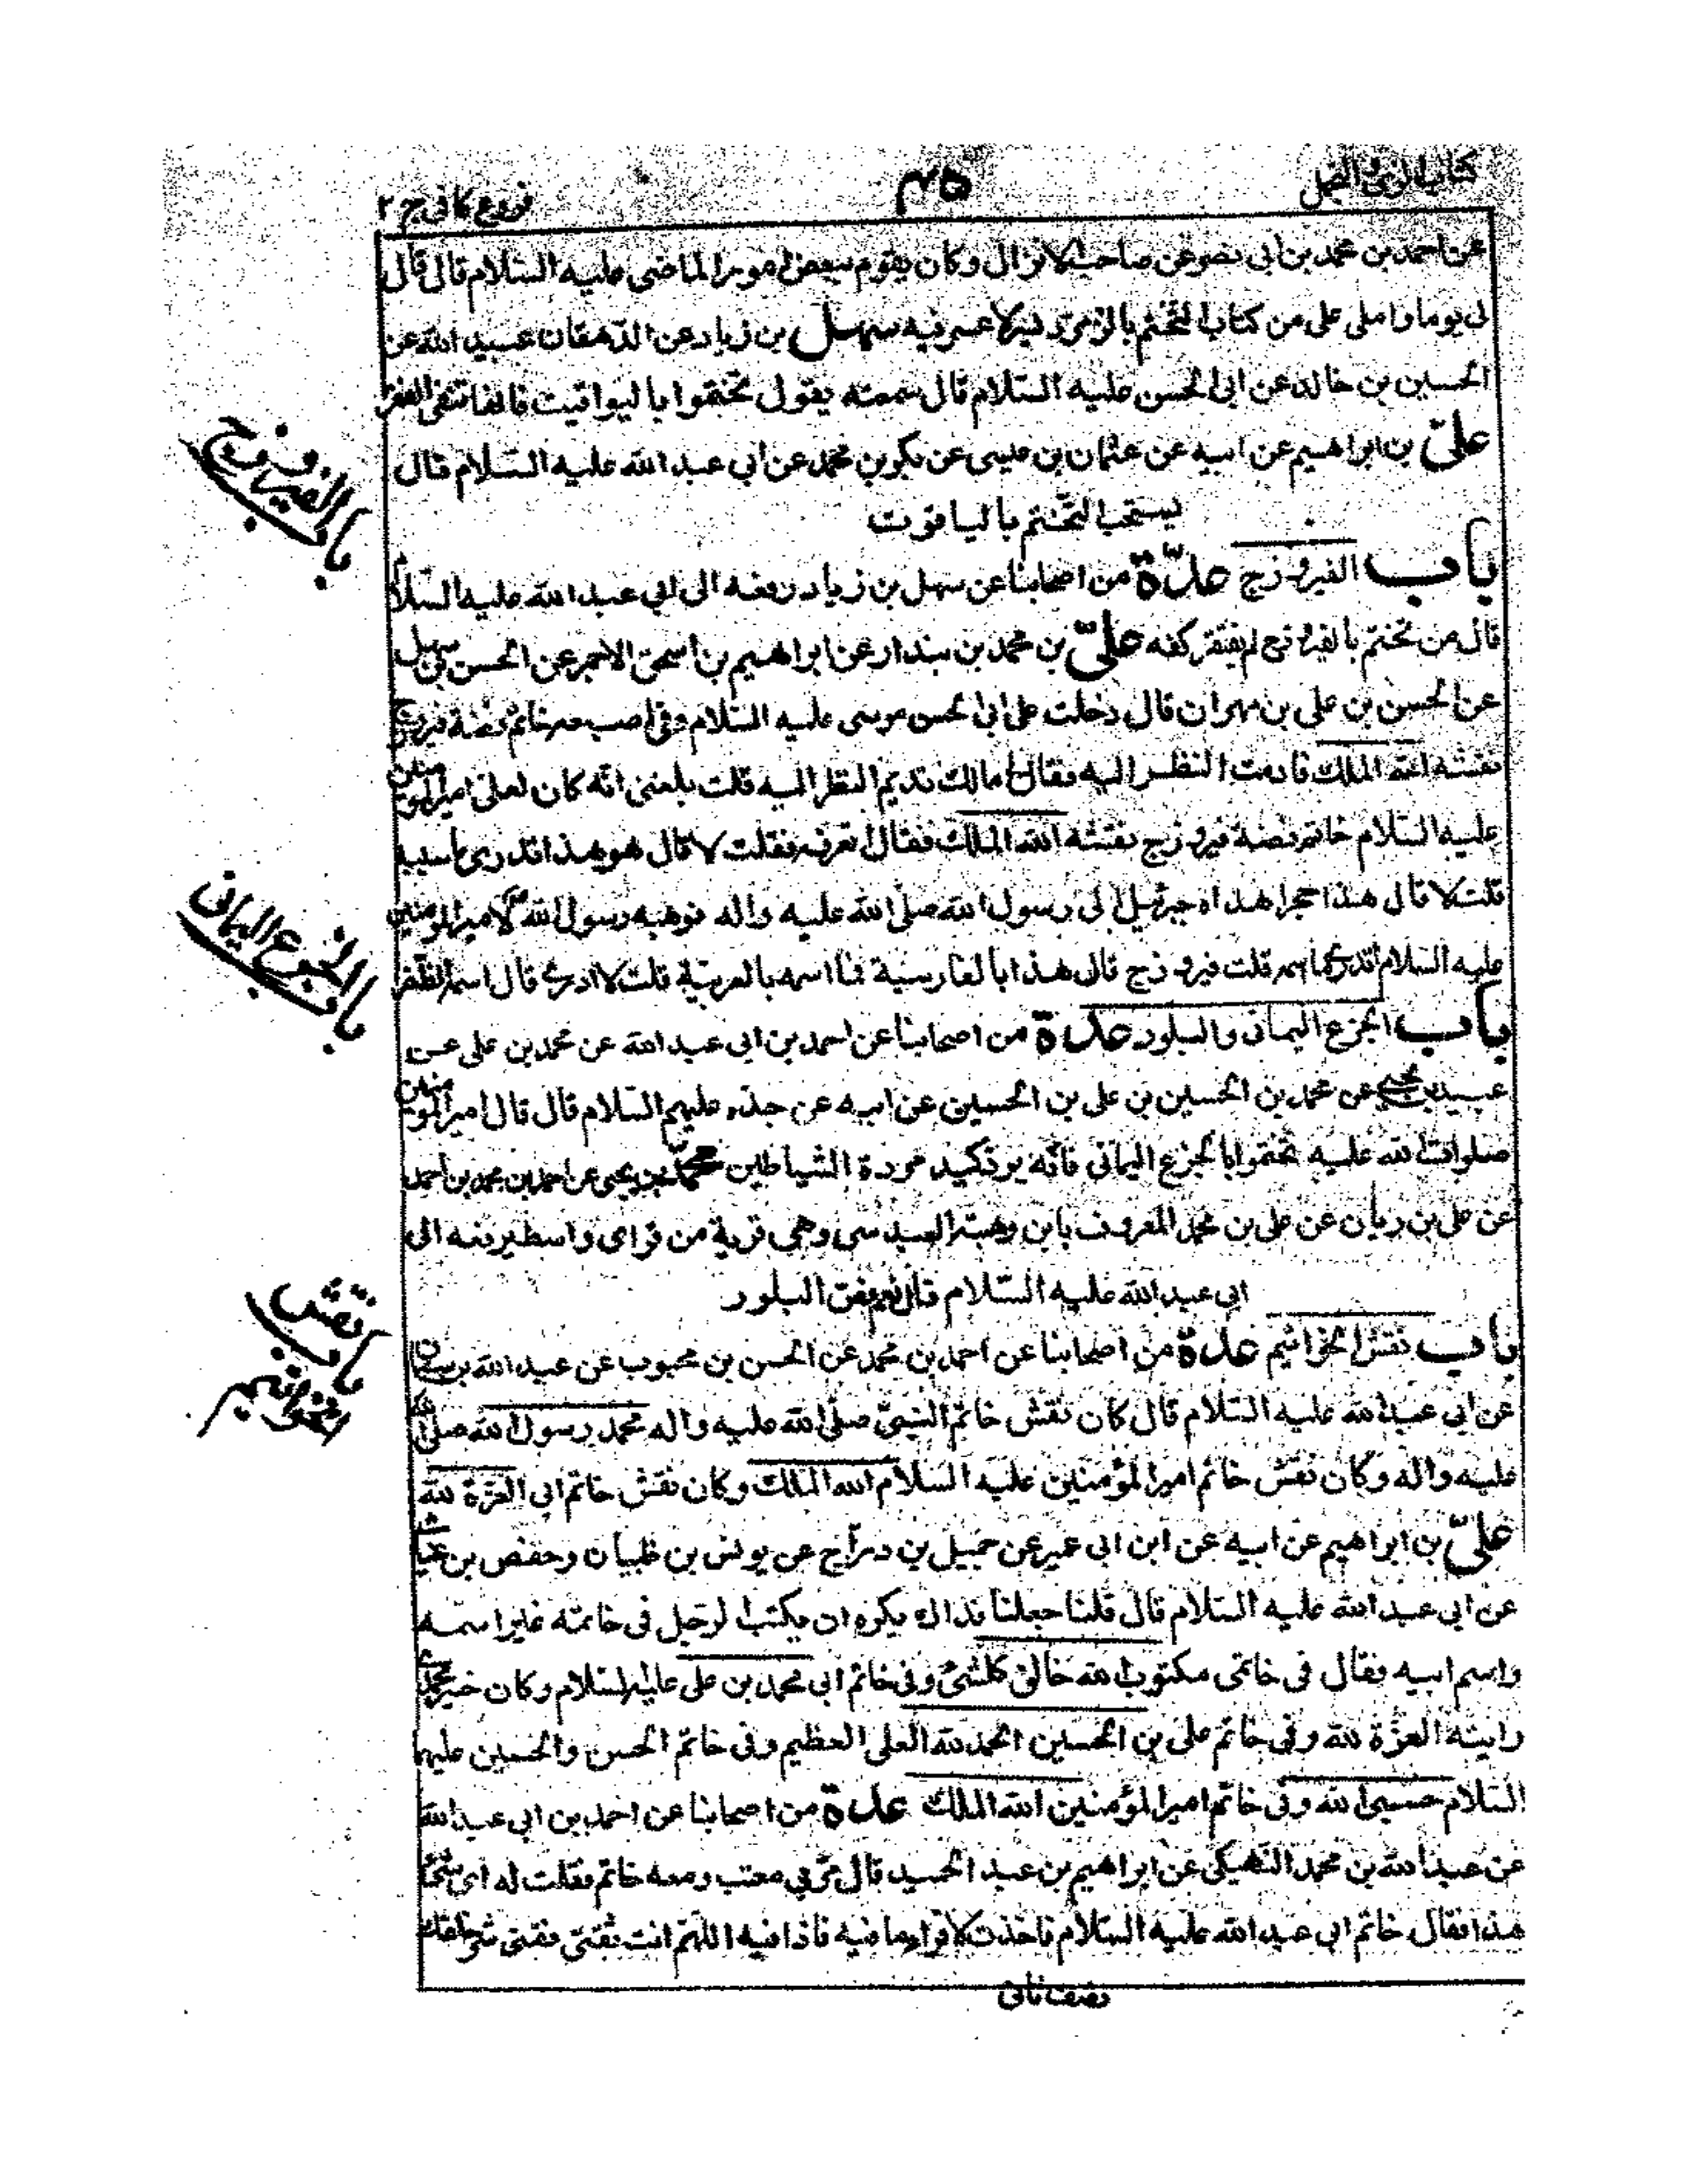 كتاب الزى والتجمل
فروع كافى ج ٢
عن احمد بن محمد بن ابى نصر عن صاحب الانزال وكان يقوم ببعض امور الماضى عليه السلام قال قال
لى يوما واملى على من كتاب التختم بالزمرد يسر لا عسر فيه سهل بن زياد عن الدهقان عبيد الله عن
الحسين بن خالد عن ابى الحسن عليه السلام قال سمعته يقول تختموا باليواقيت فانها تنفى الفقر
علىّ بن ابراهيم عن ابيه عن عثمان بن عيسى عن بكر بن محمد عن ابى عبد الله عليه السلام قال
يستحب التختم بالياقوت
باب الفيروزج عدّة من اصحابنا عن سهل بن زياد رفعه الى ابى عبد الله عليه السلام
قال من تختم بالفيروزج لم يفتقر كفه علىّ بن محمد بن بندار عن ابراهيم بن اسحق الاحمر عن الحسن بن سهل
عن الحسن بن على بن مهران قال دخلت على ابى الحسن موسى عليه السلام وفى اصبعه خاتم فضة فيروزج
نقشه الله الملك فادمت النظر اليه فقال لى مالك تديم النظر اليه قلت بلغنى انه كان لعلى امير المومنين
عليه السلام خاتم فضة فيروزج نقشه الله الملك فقال تعرفه فقلت لا قال هو هذا اتدرى ما سببه
قلت لا قال هذا حجر اهداه جبرئيل الى رسول الله صلى الله عليه واله فوهبه رسول الله لامير المومنين
عليه السلام اتدرى ما اسمه قلت فيروزج قال هذا بالفارسية فما اسمه بالعربية قلت لا ادرى قال اسمه الظفر
باب الجزع اليمانى والبلور عدة من اصحابنا عن احمد بن ابى عبد الله عن محمد بن على عن
عبيد بن يحيى عن محمد بن الحسين بن على بن الحسين عن ابيه عن جده عليهم السلام قال قال امير المومنين
صلوات الله عليه تختموا بالجزع اليمانى فانه يرد كيد مردة الشياطين محمّد بن يحيى عن احمد بن محمد بن احمد
عن على بن ريان عن على بن محمد المعروف بابن وهبة العبدسى وهى قرية من قراى واسط يرفعه الى
ابى عبد الله عليه السلام قال نعم الفص البلور
باب نقش الخواتيم عدة من اصحابنا عن احمد بن محمد عن الحسن بن محبوب عن عبد الله بن سنان
عن ابى عبد الله عليه السلام قال كان نقش خاتم النبىّ صلى الله عليه واله محمد رسول الله صلى الله
عليه واله وكان نقش خاتم امير المؤمنين عليه السلام الله الملك وكان نقش خاتم ابى العزة لله
علىّ بن ابراهيم عن ابيه عن ابن ابى عمير عن جميل بن دراج عن يونس بن ظبيان وحفص بن غياث
عن ابى عبد الله عليه السلام قال قلنا جعلنا فداك يكره ان يكتب الرجل فى خاتمه غير اسمه
واسم ابيه فقال فى خاتمى مكتوب الله خالق كلشئ وفى خاتم ابى محمد بن على عليه السلام وكان خير محمدى
رايته العزة لله وفى خاتم على بن الحسين الحمد لله العلى العظيم وفى خاتم الحسن والحسين عليهما
السلام حسبى الله وفى خاتم امير المؤمنين الله الملك عدة من اصحابنا عن احمد بن ابى عبد الله
عن عبد الله بن محمد النهيكى عن ابراهيم بن عبد الحميد قال مرّ بى معتب ومعه خاتم فقلت له اى شئ
هذا فقال خاتم ابى عبد الله عليه السلام فاخذت لاقرا ما فيه فاذا فيه اللهم انت ثقتى فقنى شر خلقك
نصف ثانى
باب الفيروزج
باب الجزع اليمانى
باب نقش
الخواتيم